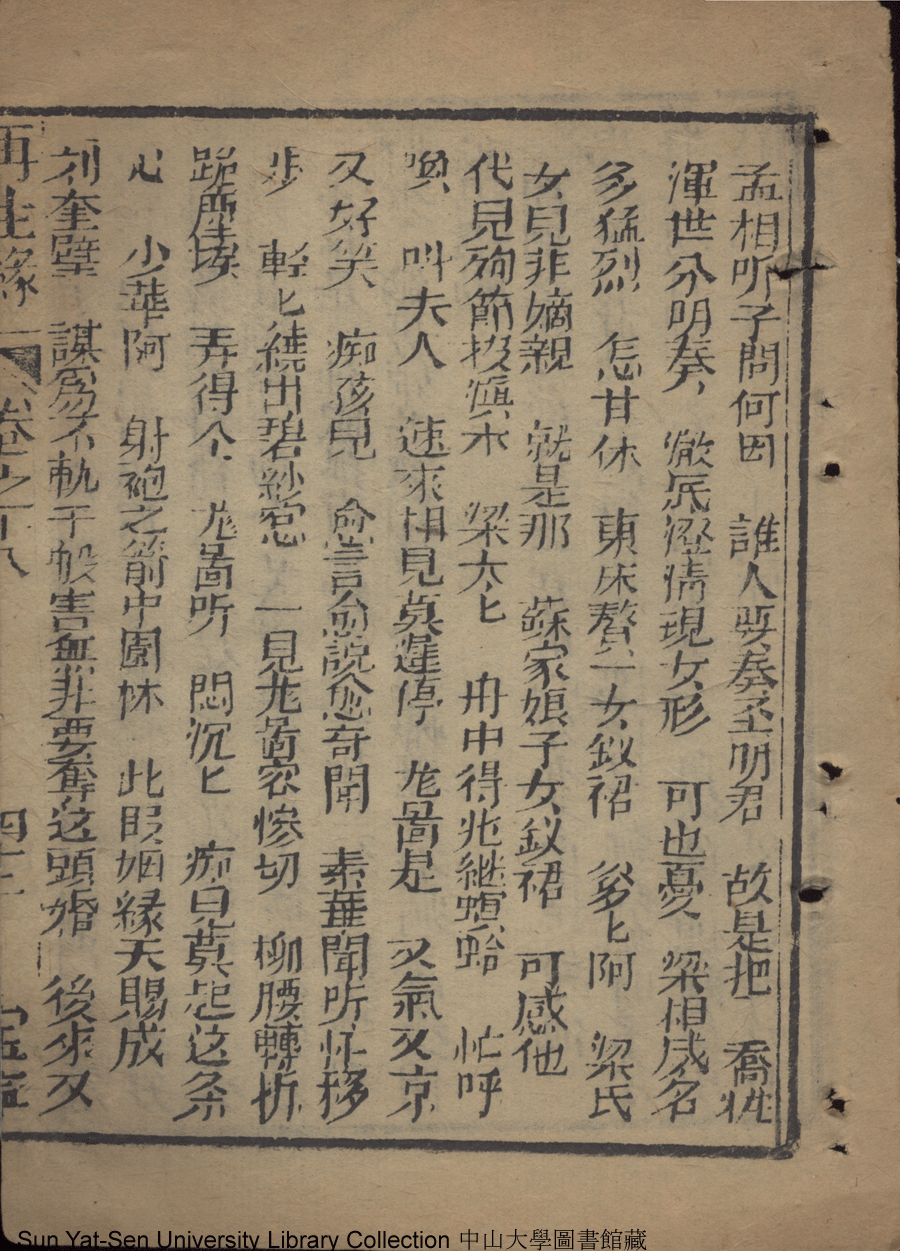 孟相听了問何因　誰人要奏丞明君　故是把　喬粧
渾世分明奏　澈底澄清現女形　可也憂　梁相威名
多猛烈　怎甘休　東床贅一女釵裙　爹匕阿　梁氏
女兒非嫡親　就是那　蘇家娘子女釵裙　可感他
代兒殉節投滇水　梁太匕　舟中得兆継螟蛉　忙呼
喚　叫夫人　速來相見莫遲停　尨啚是　又氣又京
又好笑　痴孩兒　愈言愈說愈奇聞　素華聞听忙移
步　輕匕繞出碧紗窓　一見尨啚容慘切　柳腰轉折
跪塵埃　弄得个　尨啚听　悶沉匕　痴兒莫起这条
心　少華阿　射袍之箭中園林　此段姻緣天賜成
刘奎璧　謀爲不軌千般害無非要奪这頭婚　後來又
再生緣　卷之十八　四十二